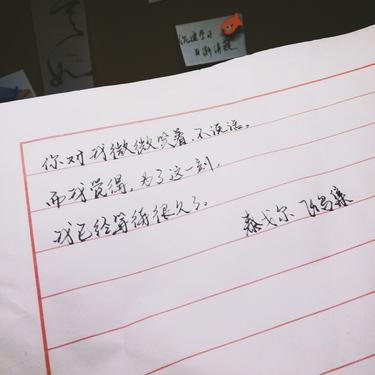 你对我微微笑着,不说话。
而我觉得,为了这一刻,
我已经等待很久了。
泰戈尔 飞鸟集